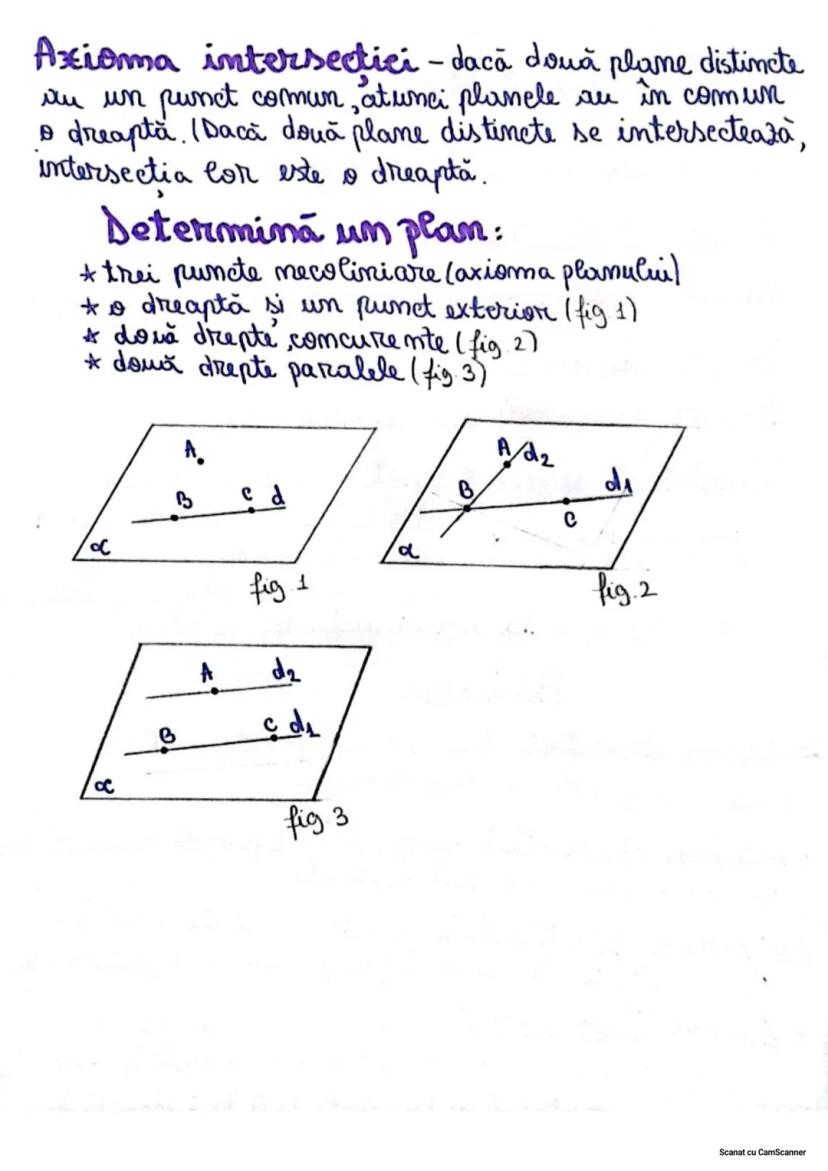 Axioma intersecției - dacă două plane distincte
au un punct comun, atunci planele au în comun
o dreaptă. (Dacă două plane distincte se intersectează,
intersecția lor este o dreaptă.
Determină un plan:
* trei puncte necoliniare (axioma planului)
* o dreaptă și un punct exterior (fig. 1)
* două drepte concurente (fig. 2)
* două drepte paralele (fig. 3)
A
B C d
α
fig. 1
A d₂
B d₁
C
α
fig. 2
A d₂
B C d₁
α
fig. 3
Scanat cu CamScanner